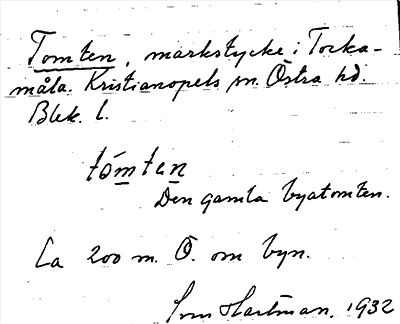 Tomten, markstycke i Torka-
måla. Kristianopels sn. Östra hd.
Blek. l.
tómten
Den gamla byatomten.
Ca 200 m. Ö. om byn.
Sven Hartman. 1932